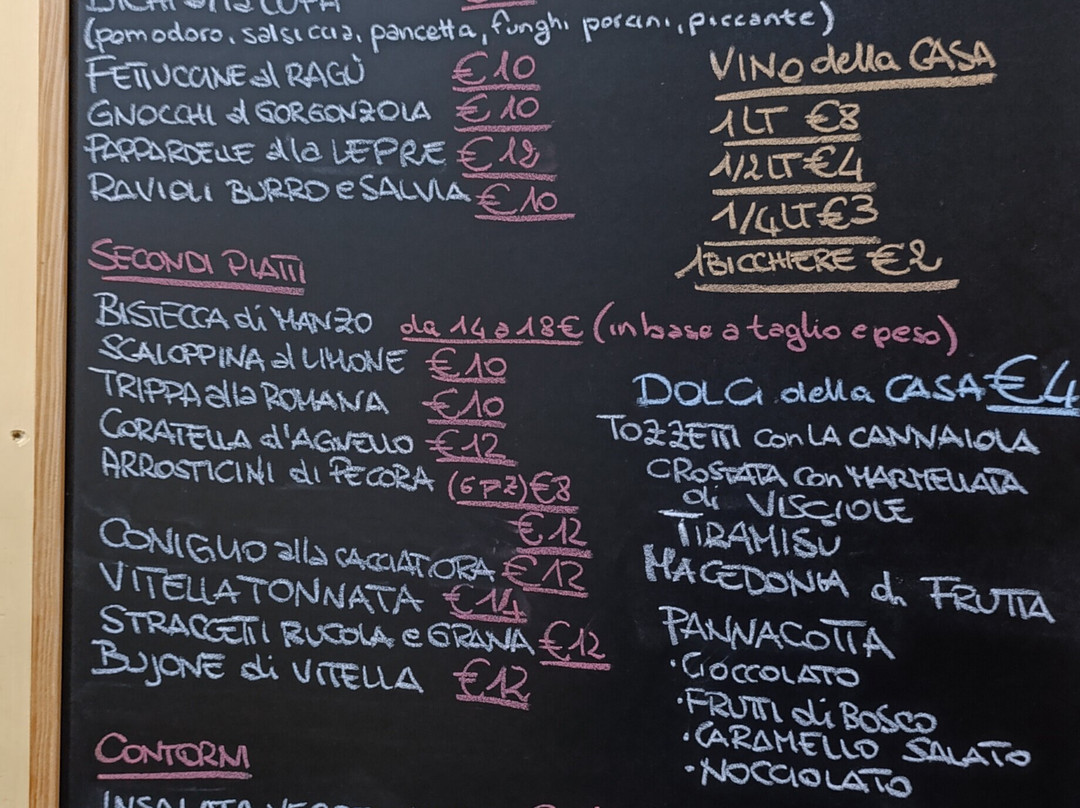 (pomodoro, salsiccia, pancetta, funghi porcini, piccante)
FETTUCCINE al RAGÙ €10
GNOCCHI al GORGONZOLA €10
PAPPARDELLE alla LEPRE €12
RAVIOLI BURRO e SALVIA €10
SECONDI PIATTI
BISTECCA di MANZO da 14 a 18€ (in base a taglio e peso)
SCALOPPINA al LIMONE €10
TRIPPA alla ROMANA €10
CORATELLA d'AGNELLO €12
ARROSTICINI di PECORA (6 PZ) €8
€12
CONIGLIO alla CACCIATORA €12
VITELLA TONNATA €14
STRACCETTI RUCOLA e GRANA €12
BUJONE di VITELLA €12
CONTORNI
VINO della CASA
1 LT €8
1/2 LT €4
1/4 LT €3
1 BICCHIERE €2
DOLCI della CASA €4
TOZZETTI con LA CANNAIOLA
CROSTATA con MARMELLATA
di VISCIOLE
TIRAMISU
MACEDONIA di FRUTTA
PANNACOTTA
·CIOCCOLATO
·FRUTTI di BOSCO
·CARAMELLO SALATO
·NOCCIOLATO